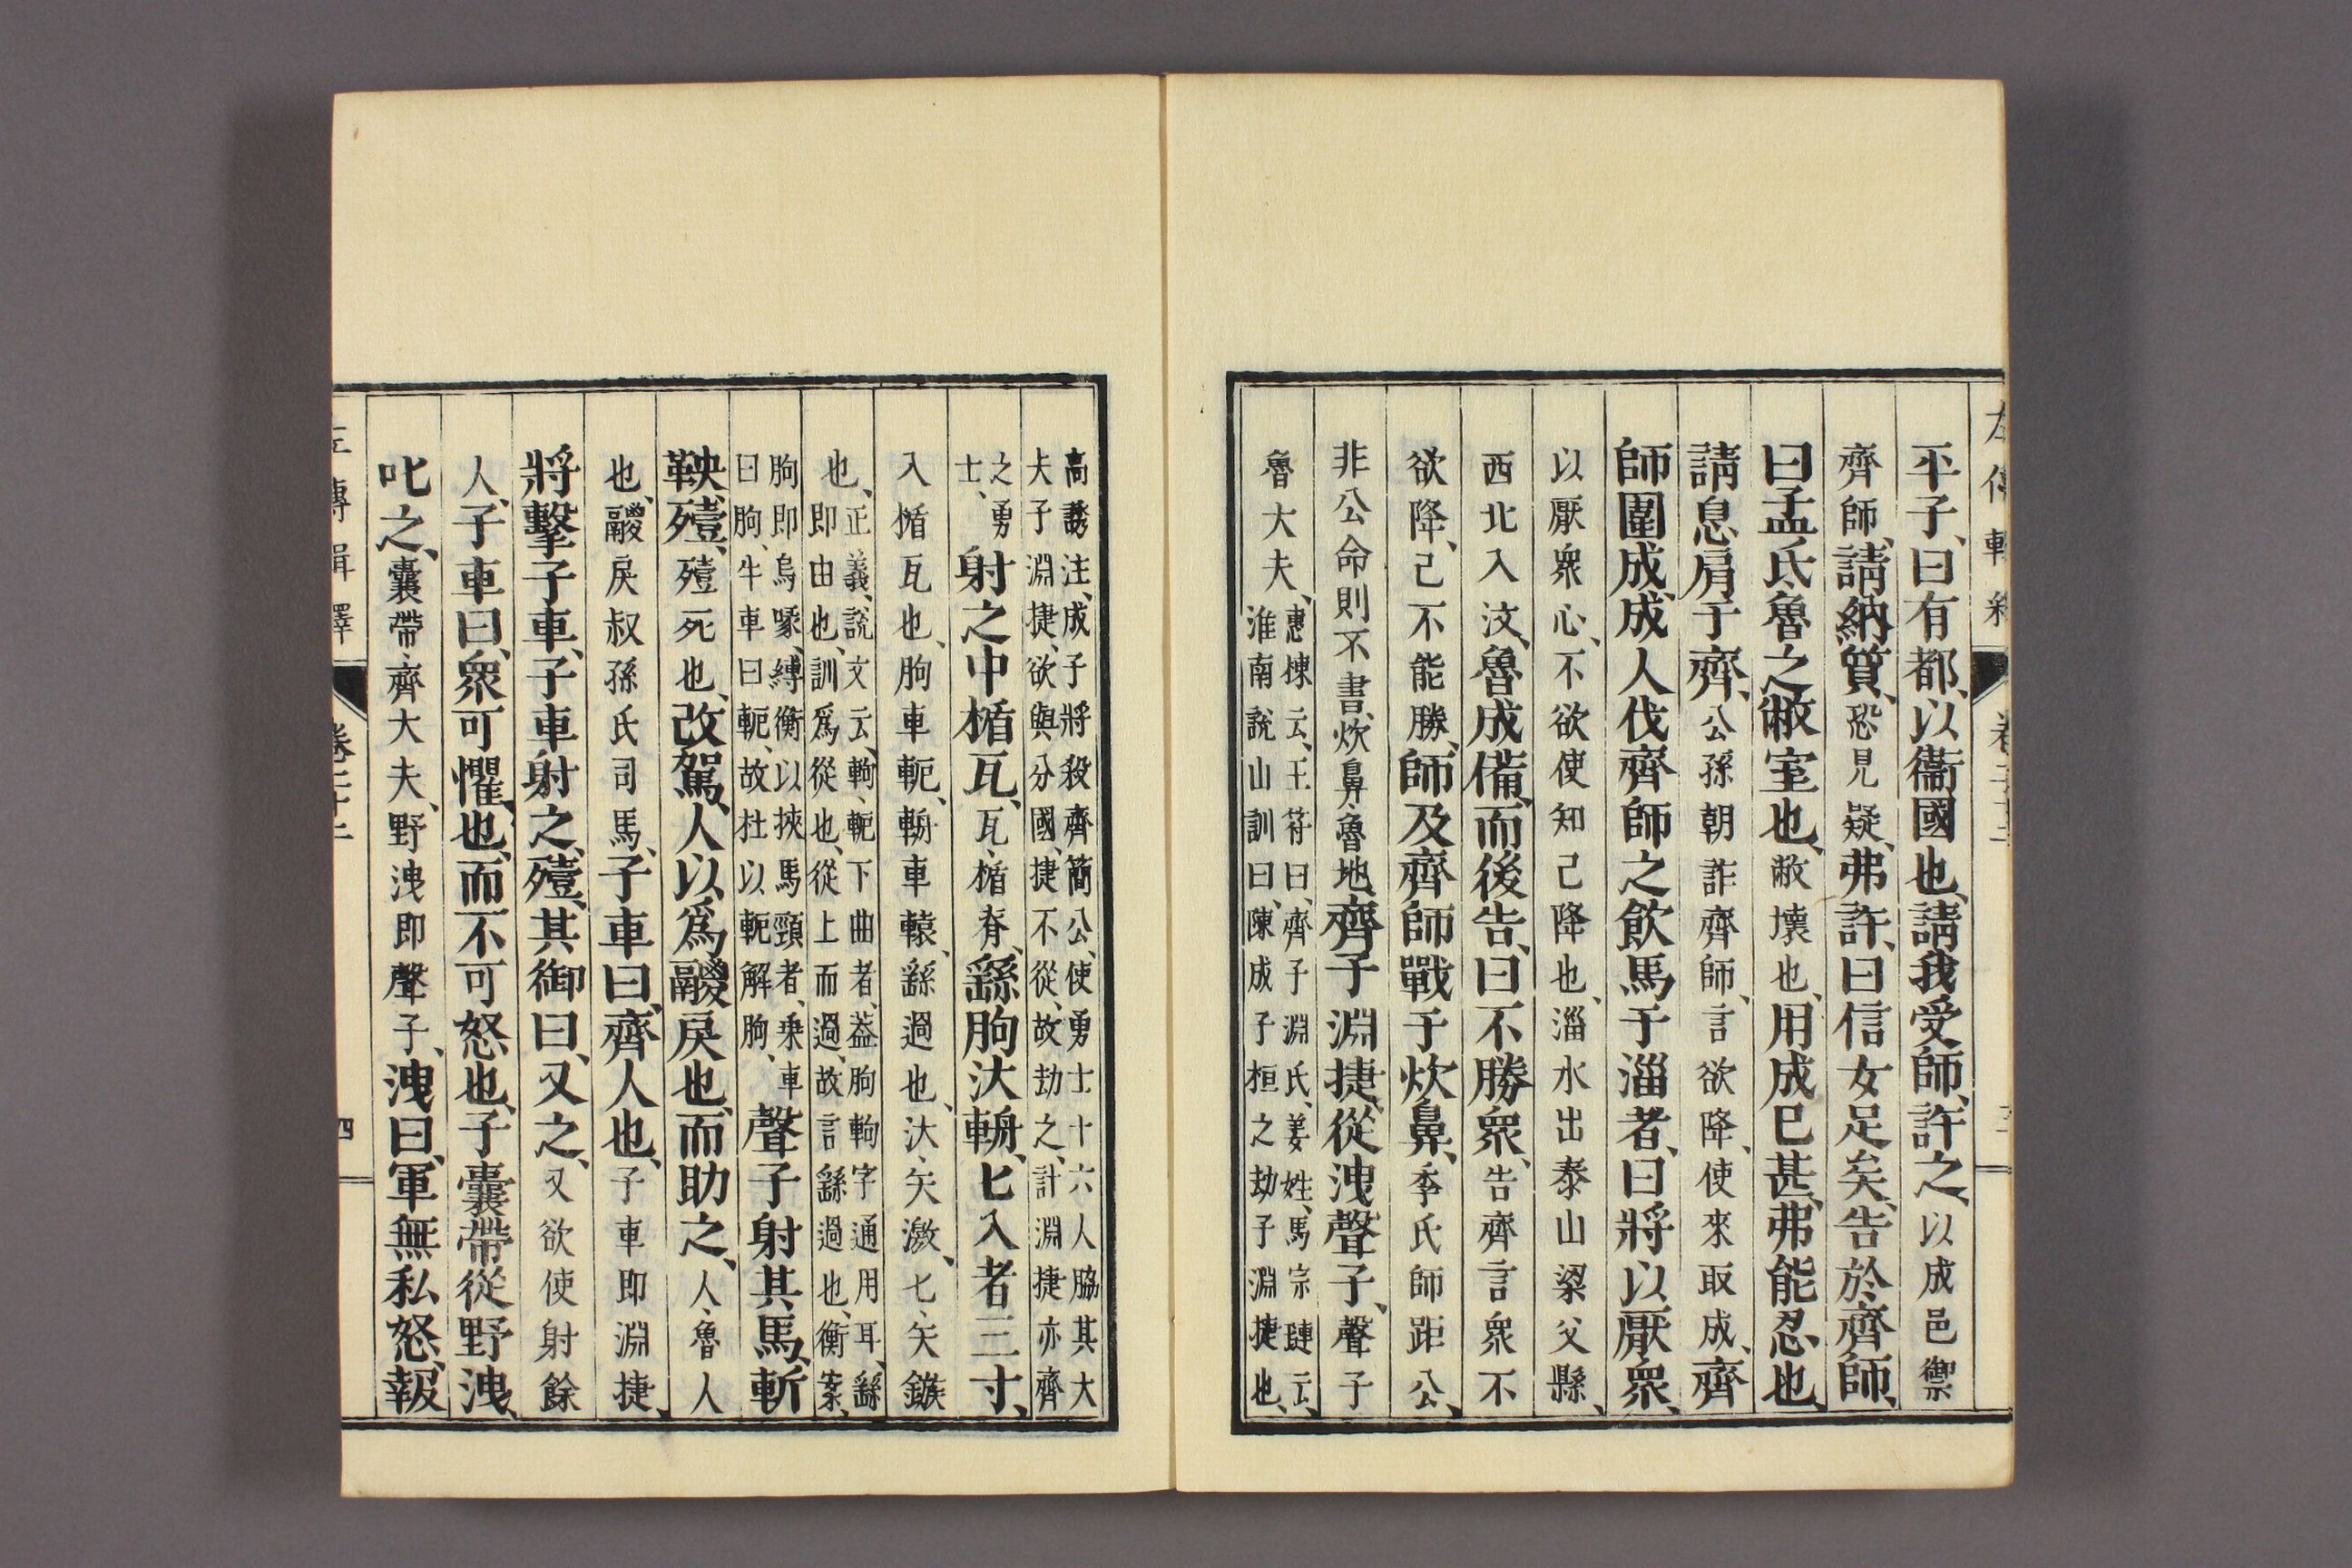 平子、曰有都、以衞國也、請我受師、許之、以成邑禦
齊師、請納質、恐見疑、弗許、曰信女足矣、告於齊師、
曰孟氏魯之敝室也、敝壞也、用成已甚、弗能忍也、
請息肩于齊、公孫朝詐齊師、言欲降、使來取成、齊
師圍成、成人伐齊師之飮馬于淄者、曰將以厭衆、
以厭衆心、不欲使知己降也、淄水出泰山梁父縣、
西北入汶、魯成備、而後告、曰不勝衆、告齊言衆不
欲降、己不能勝、師及齊師戰于炊鼻、季氏師距公、
非公命則不書、炊鼻、魯地、齊子淵捷、從洩聲子、聲子
魯大夫、惠棟云、王符曰、齊子淵氏、姜姓、馬宗璉云、
淮南說山訓曰、陳成子桓之劫子淵捷也、
高誘注、成子將殺齊簡公、使勇士十六人脇其大
夫子淵捷、欲與分國、捷不從、故劫之、計淵捷亦齊
之勇
士、射之中楯瓦、瓦、楯脊、繇胊汰輈、匕入者三寸、
入楯瓦也、胊車軶、輈車轅、繇過也、汰、矢激、匕、矢鏃
也、正義、說文云、軥、軶下曲者、葢胊軥字通用耳、繇
即由也、訓爲從也、從上而過、故言繇過也、衡案、
胊即烏喙、縛衡以挾馬頸者、乗車
曰胊、牛車曰軶、故杜以軶解胊、聲子射其馬、斬
鞅、殪、殪死也、改駕、人以爲鬷戾也、而助之、人、魯人
也、鬷戾叔孫氏司馬、子車曰、齊人也、子車即淵捷、
將擊子車、子車射之、殪、其御曰、又之、又欲使射餘
人、子車曰、衆可懼也、而不可怒也、子囊帶從野洩、
叱之、囊帶、齊大夫、野洩即聲子、洩曰、軍無私怒、報
左傳輯釋
卷二十二
四